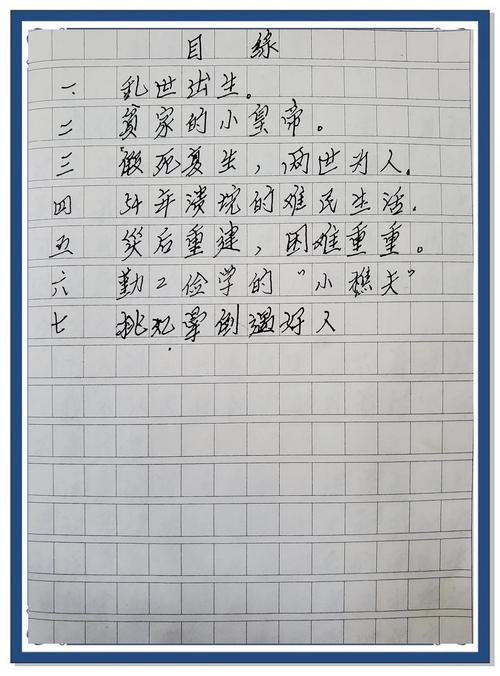 目 录
一. 乱世出生。
二 贫家的小皇帝。
三 假死复生，两世为人.
四 54年溃垸的难民生活.
五 灾后重建，困难重重。
六 勤工俭学的“小樵夫”
七 挑 晕倒遇好人